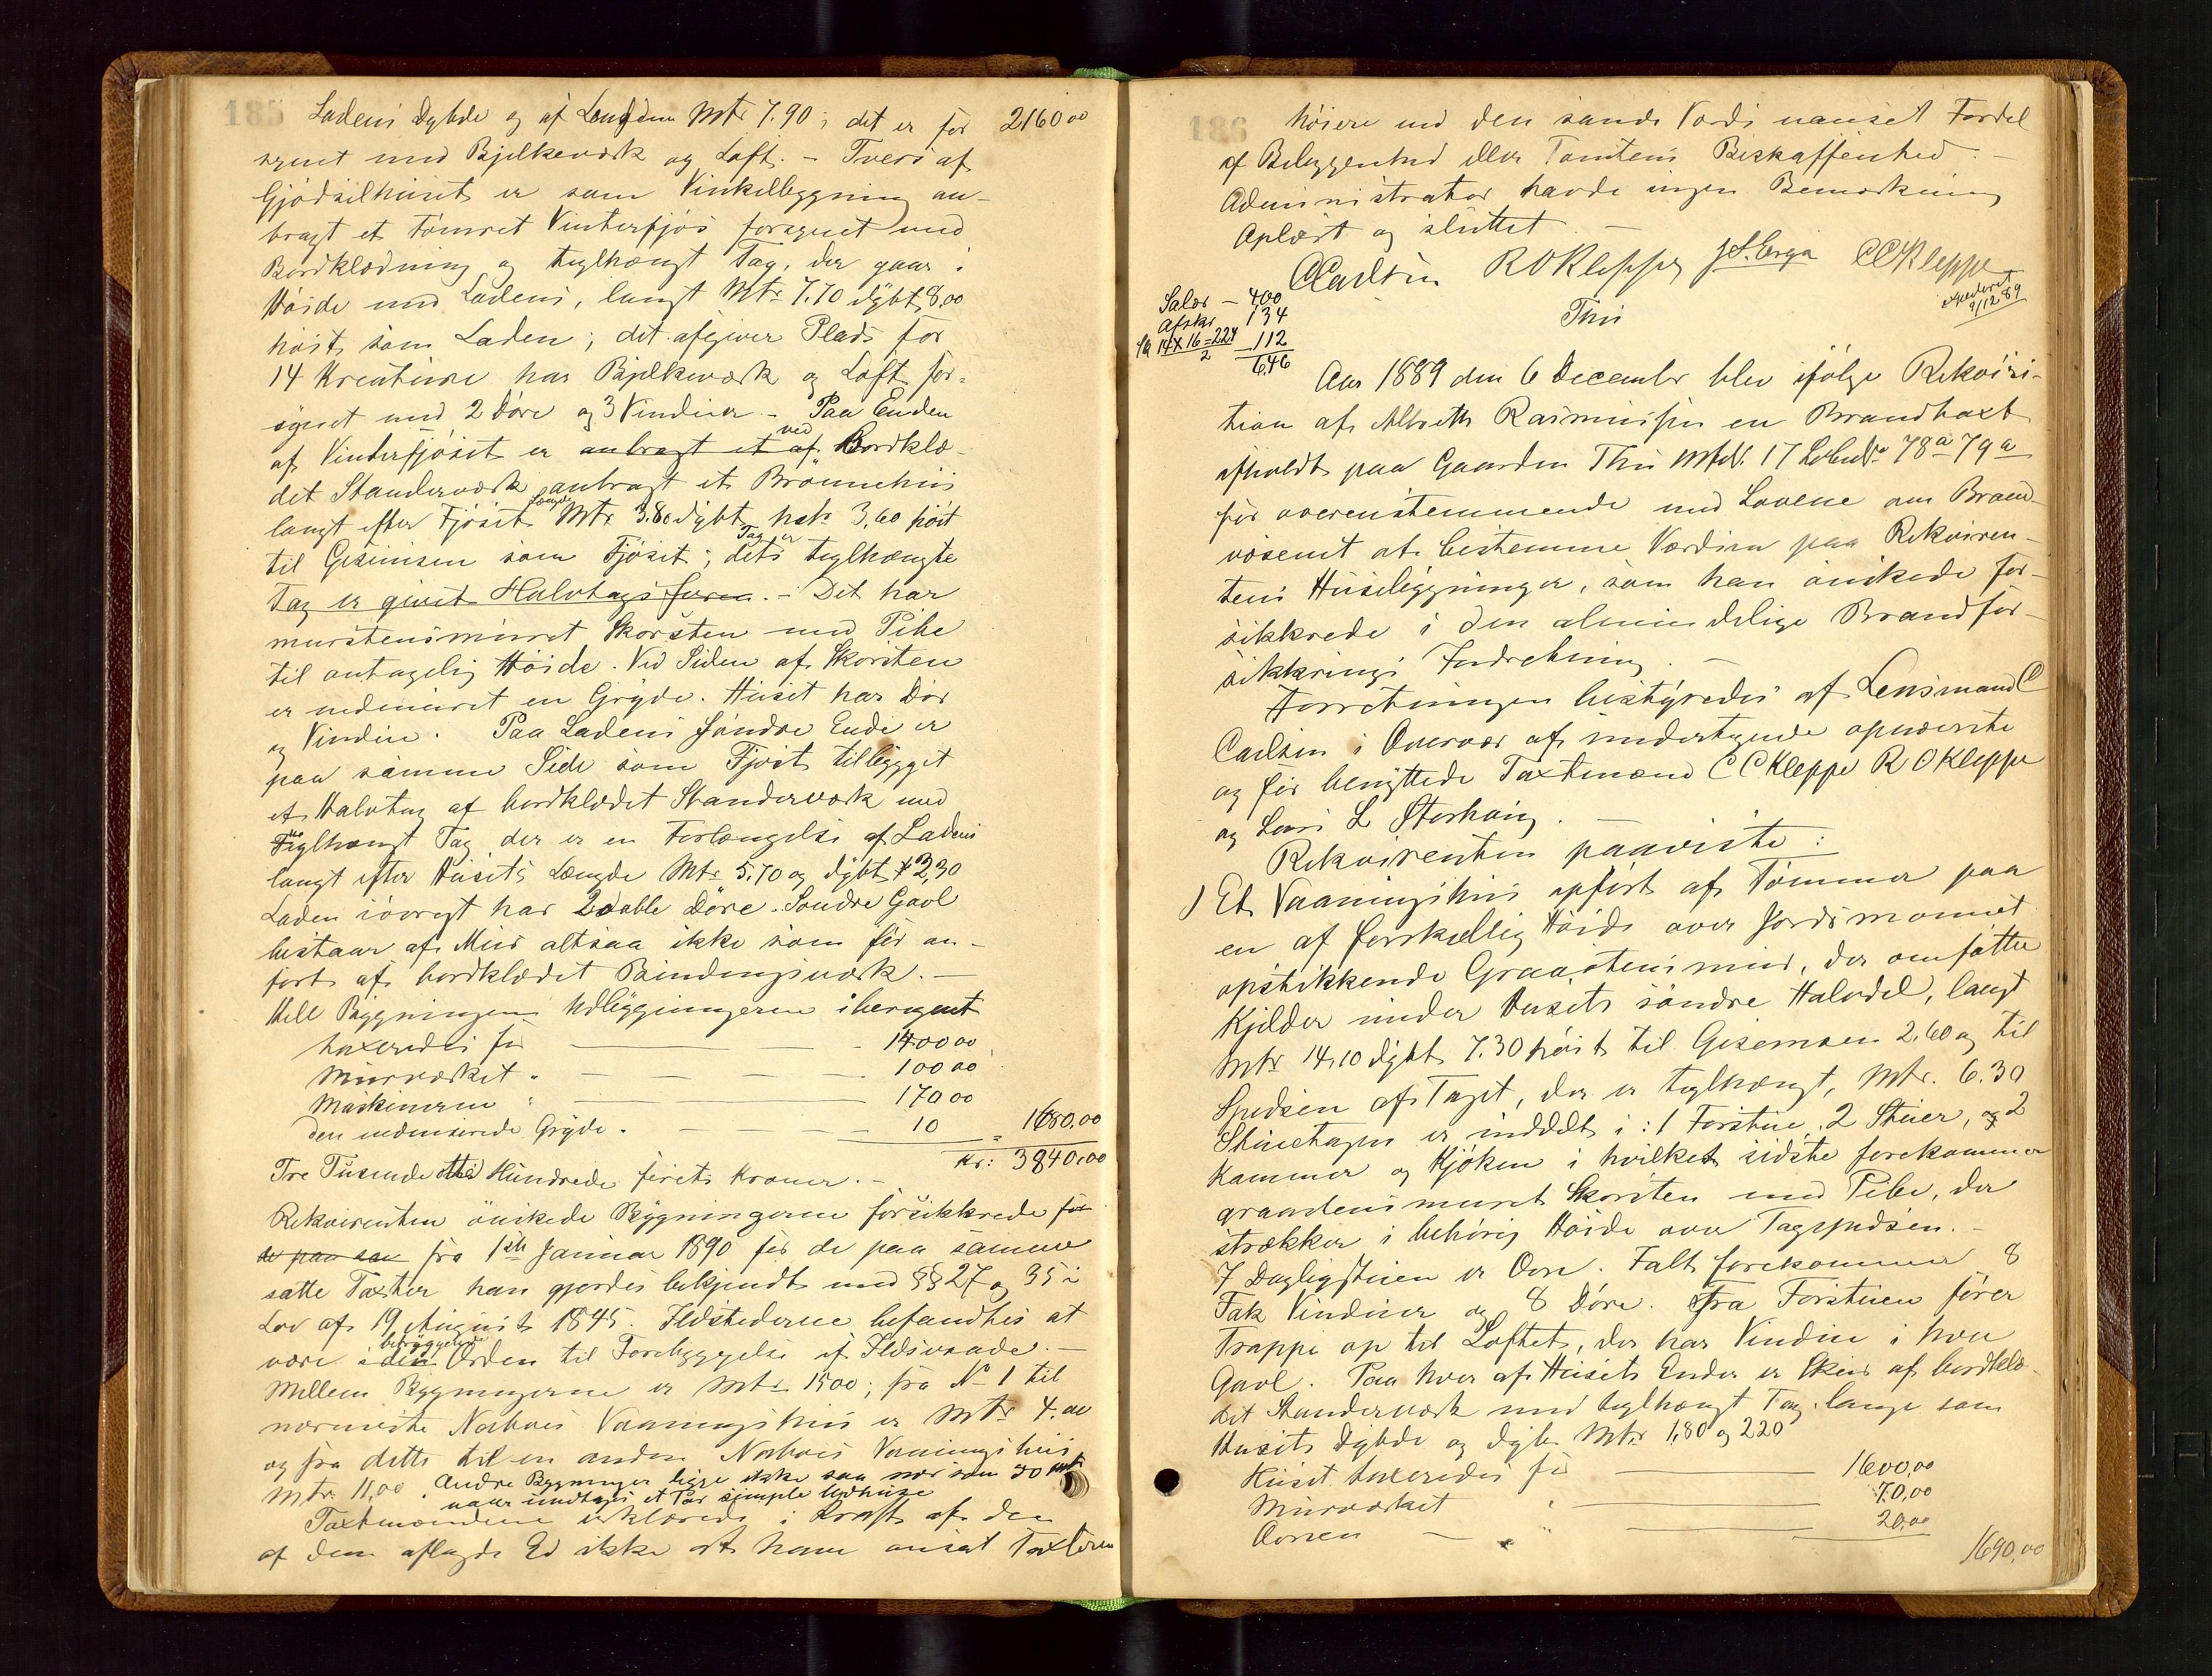 185
Ladens Dybde og af Længden Mtr 7.90; det er for 2160 00
synet med Bjelkeværk og Loft. – Tvers af
Gjødselhuset er som Vinkelbygning an-
bragt et tømret Vinterfjøs forsynet med
Bordklædning og teglhængt Tag, der gaar i
Høide med Ladens, langt Mtr 7.70 dybt 8,00
høit som Laden; det afgiver Plads for
14 Kreature har Bjelkeværk og Loft for-
synet med 2 Døre og 3 Vinduer – Paa Enden
af Vinterfjøset er anbragt et af ved Bordklæ-
det Standerværk anbragt et Brønnehus
langt efter Fjøsets Længde Mtr 3.80 dybt Mtr 3,60 høit
til Gesimsen som Fjøset; dets Tag er teglhængte
Tag er givet Halvtagsform. – Det har
murstensmuret Skorsten med Pibe
til antagelig Høide. Ved Siden af Skorsten
er nedmuret en Gryde. Huset har Dør
og Vindue. Paa Ladens søndre Ende er
paa samme Side som Fjøset tilbygget
et Halvtag af bordklædet Standerværk med
Teglhængt Tag der er en Forlængelse af Ladens
langt efter Husets Længde Mtr 5.70 og dybt 2,30
Laden iøvrigt har 2 doble Døre. Søndre Gavl
bestaar af Mur altsaa ikke som før an-
ført af bordklædet Bindingsværk. –
Hele Bygningen Udbygningerne iberegnet
taxeredes for – 1400 00
Murværket " – 100 00
Maskinerne " – 170 00
den nedmurede Gryde " – 10 = 1680,00
Kr: 3840,00
Tre Tusende otte Hundrede fireti Kroner. –
Rekvirenten ønskede Bygningerne forsikkrede for
de paa sam fra 1ste Januar 1890 for de paa samme
satte Taxter han gjordes bekjendt med §§ 27 og 35 i
Lov af 19 August 1845. Ildstederne befandtes at
være i den betryggende Orden til Forebyggelse af Ildsvaade. –
Mellem Bygningerne er Mtr 15.00; fra No 1 til
nærmeste Nabos Vaaningshus er Mtr 4.00
og fra dette til en anden Nabos Vaaningshus
Mtr. 11,00. Andre Bygninger ligge ikke saa nær som 30 Mtr
naar undtages et Par simple Udhuse
Taxtmændene erklærede i Kraft af den
af dem aflagde Ed ikke at have ansat Taxterne
186
høiere end den sande Værdi uanset Fordel
af Beliggenhed eller Tomtens Beskaffenhed. –
Administrator havde ingen Bemærkning
Oplæst og sluttet –
CCarlsen R O Kleppe J S. Erga CCKleppe
expederet
9/12 89
Salær – 400
Afskr 134
Sk 14 X 16 = 224 112
2 6,46
Thu
Aar 1889 den 6 December blev ifølge Rekvisi-
tion af Albreth Rasmussen en Brandtaxt
afholdt paa Gaarden Thu Mtrl. 17 Løbeno 78 a 79 a
for overenstemmende med Lovene om Brand-
væsenet at bestemme Værdien paa Rekviren-
tens Husebygninger, som han ønskede for-
sikkrede i den almindelige Brandfor-
sikkrings Indretning. –
Forretningen bestyredes af Lensmand C
Carlsen i Overvær af undertegnede opnævnte
og før benyttede Taxtmænd C C Kleppe R O Kleppe
og Lars L Storhaug. –
Rekvirenten paaviste:
1 Et Vaaningshus opført af Tømmer paa
en af forskjellig Høide over Jordsmonnet
opstikkende Graastensmur, der omfatter
Kjelder under Husets søndre Halvdel, langt
Mtr 14,10 dybt 7.30 høit til Gesemsen 2.60 og til
Spidsen af Taget, der er teglhængt, Mtr. 6.30
Stueetagen er inddelt i: 1 Forstue, 2 Stuer, og 2
Kammer og Kjøken i hvilket sidste forekommer
graastensmuret Skorsten med Pibe, der
strækker i behørig Høide over Tagspidsen. –
I Dagligstuen er Ovn. Falt forekommer 8
Fak Vinduer og 8 Døre. Fra Forstuen fører
Trappe op til Loftet, der har Vindue i hver
Gavl. Paa hver af Husets Ender er Skur af bordklæ-
det Standerværk med teglhængt Tag lange som
Husets Dybde og dybe Mtr 1,80 og 2 20
Huset taxeredes for – 1600,00
Murværket " – 70,00
Ovnen – " – 20,00
1690,00